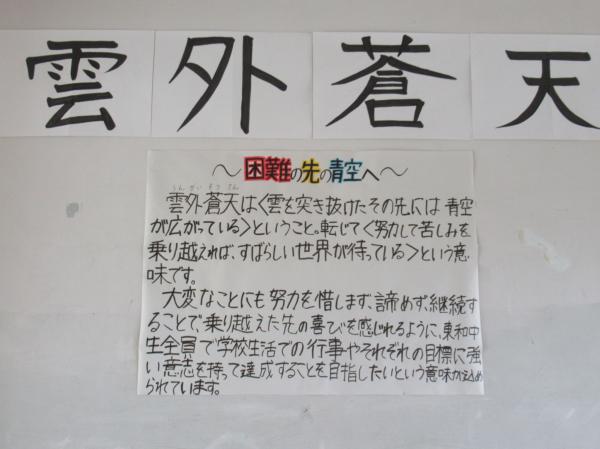 雲外蒼天
〜困難の先の青空へ〜
うんがいそうてん
雲外蒼天は〈雲を突き抜けたその先には青空
が広がっている〉ということ。転じて〈努力して苦しみを
乗り越えれば、すばらしい世界が待っている〉という意
味です。
大変なことにも努力を惜しまず、諦めず、継続す
ることで乗り越えた先の喜びを感じれるように、東和中
生全員で学校生活での行事やそれぞれの目標に強
い意志を持って達成することを目指したいという意味が込め
られています。